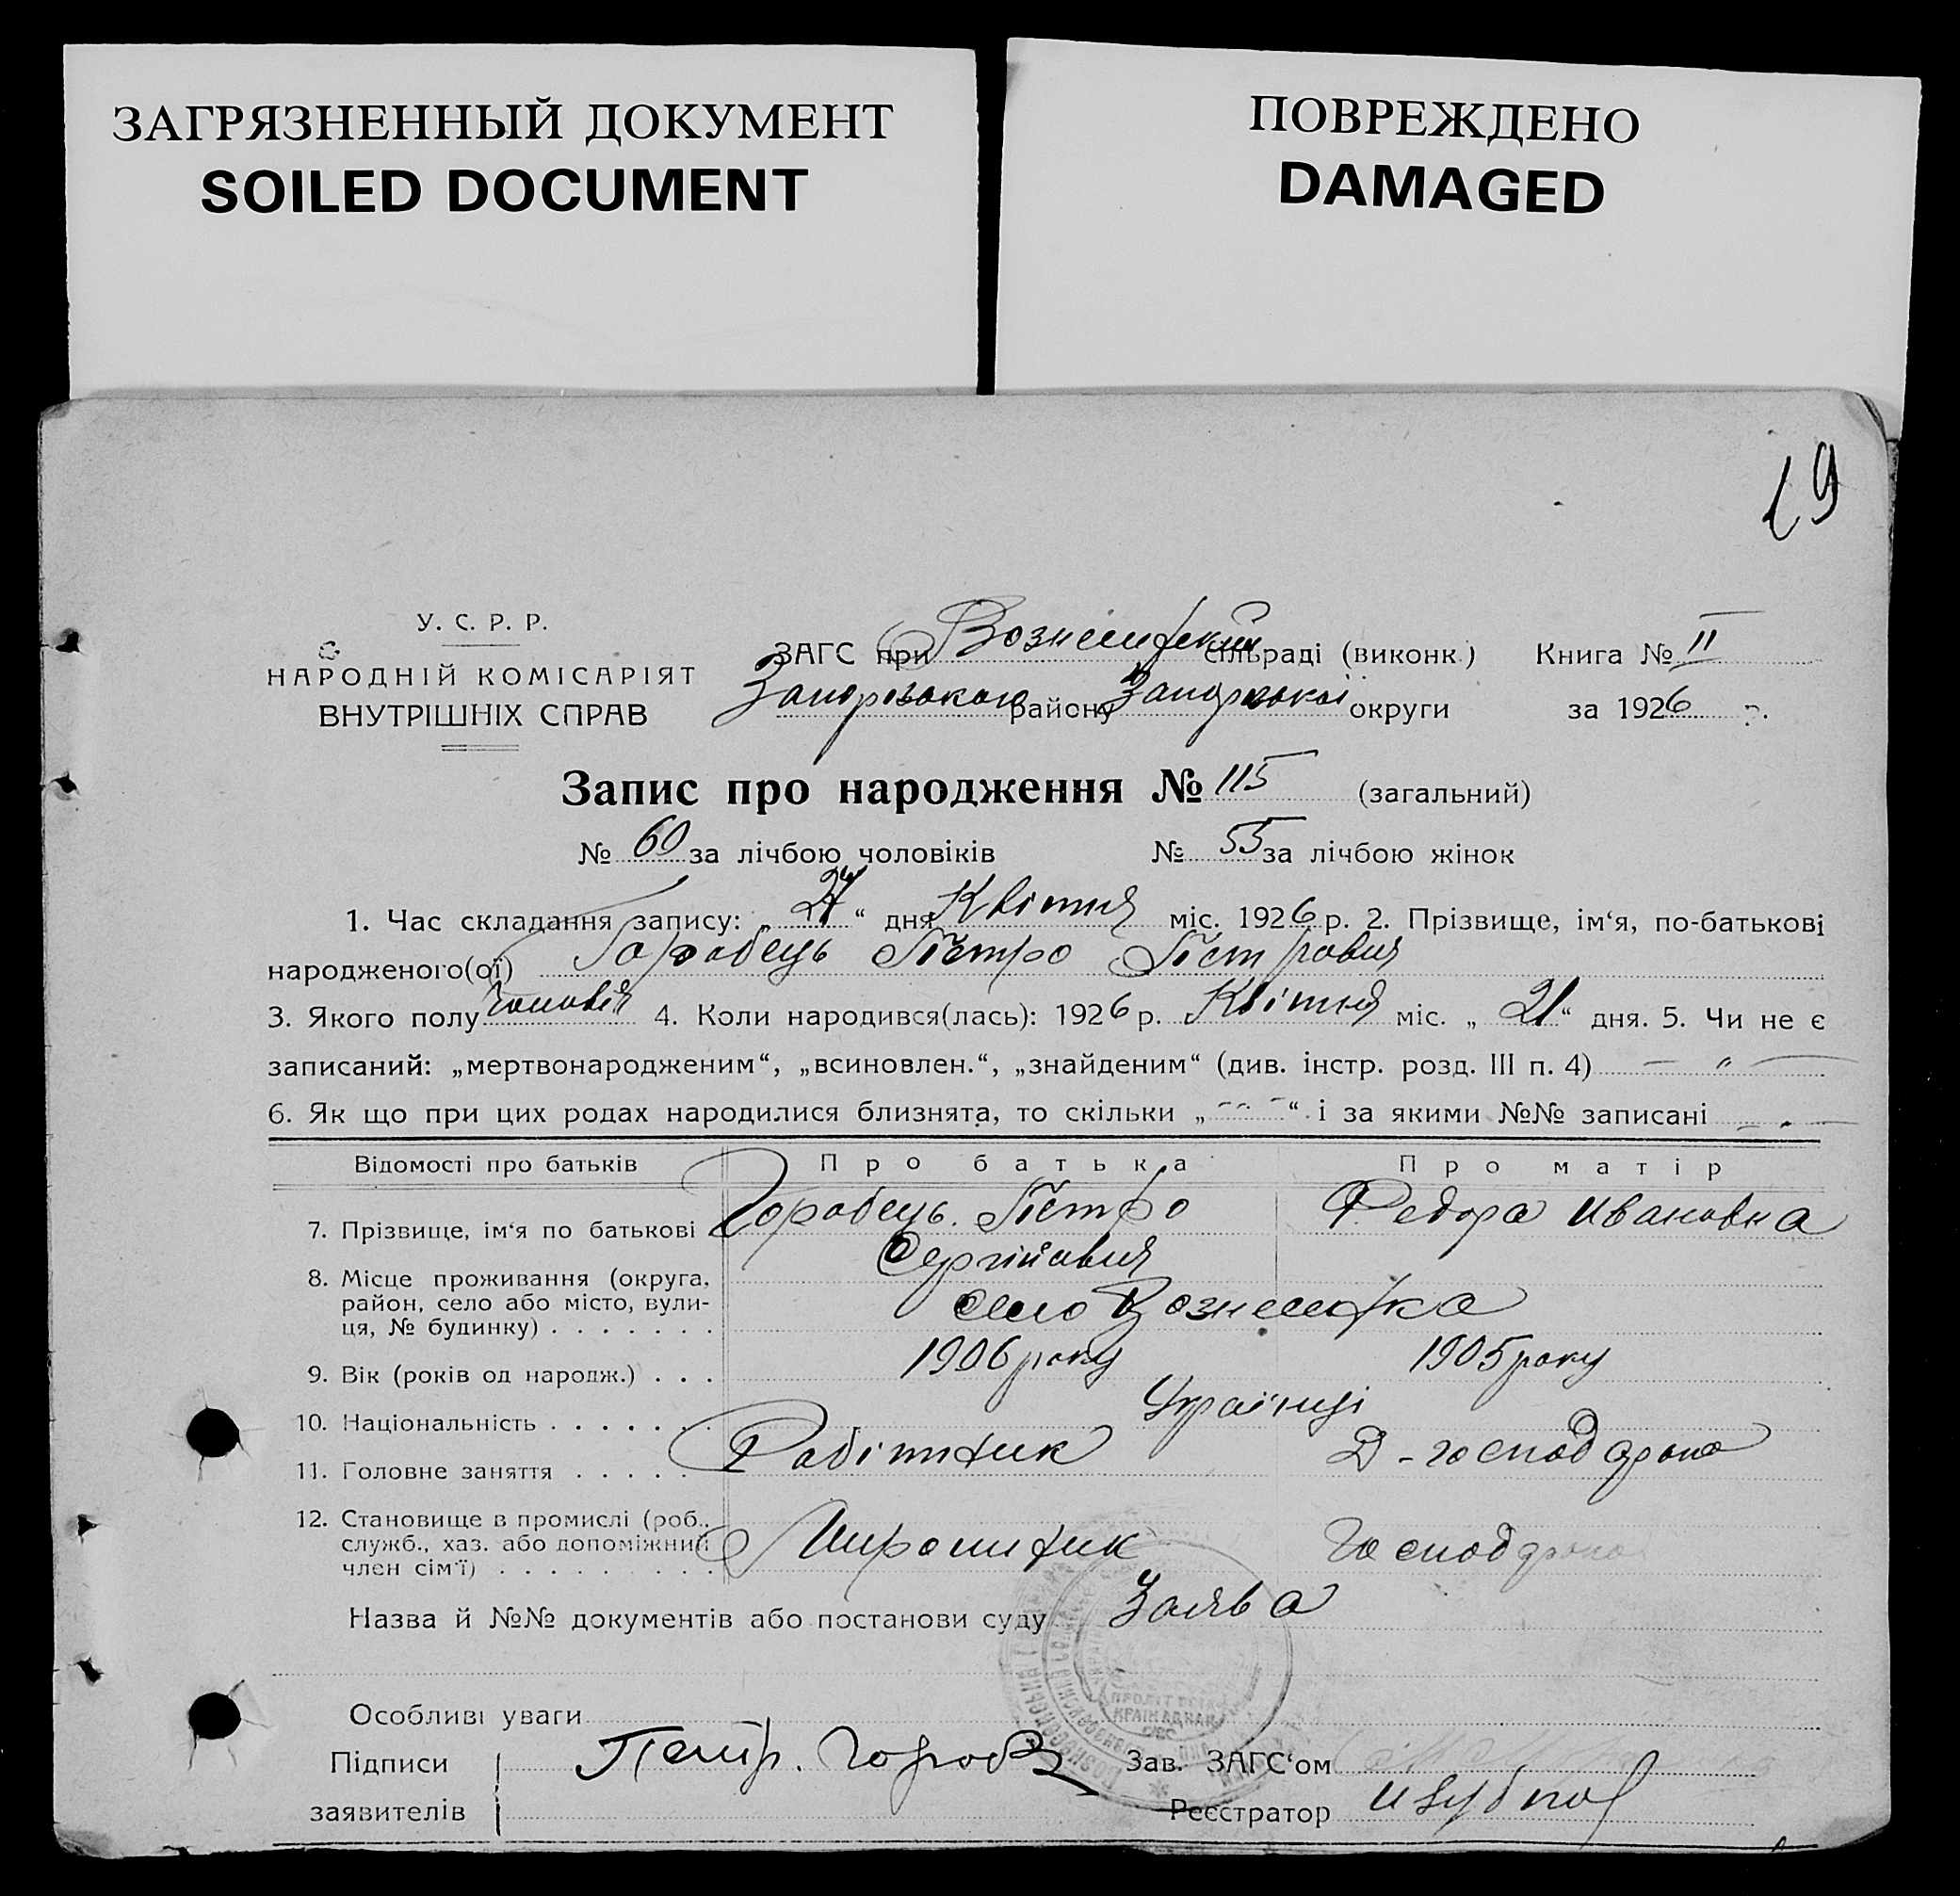 ЗАГРЯЗНЕННЫЙ ДОКУМЕНТ
SOILED DOCUMENT
ПОВРЕЖДЕНО
DAMAGED
19
У. С. Р. Р.
НАРОДНІЙ КОМІСАРІЯТ
ВНУТРІШНІХ СПРАВ
ЗАГС при Вознесенській сільраді (виконк.) Книга № II
Запорізького району Запорізької округи за 1926 р.
Запис про народження № 115 (загальний)
№ 60 за лічбою чоловіків № 55 за лічбою жінок
1. Час складання запису: „ “ дня Квітня міс. 1926 р. 2. Прізвище, ім‘я, по-батькові
народженого(ої) Горобець Петро Петрович
3. Якого полу 4. Коли народився(лась): 1926 р. Квітня міс. „21“ дня. 5. Чи не є
записаний: „мертвонародженим“, „всиновлен.“, „знайденим“ (див. інстр. розд. III п. 4) — „ —
6. Як що при цих родах народилися близнята, то скільки „ - - “ і за якими №№ записані - . -
Відомості про батьків Про батька Про матір
7. Прізвище, ім‘я по батькові Горобець Петро Федора Ивановна
Сергійович
8. Місце проживання (округа,
район, село або місто, вули-
ця, № будинку) . . . . . . . село Вознесенка
9. Вік (років од народж.) . . . 1906 року 1905 року
10. Національність . . . . . . . Українці
11. Головне заняття . . . . . Робітник Д-господарка
12. Становище в промислі (роб.,
служб., хаз. або допоміжний
член сім‘ї) . . . . . . . . . господарка
Назва й №№ документів або постанови суду Заява
Особливі уваги
Підписи Петр. Зав. ЗАГС‘ом
заявителів Реєстратор